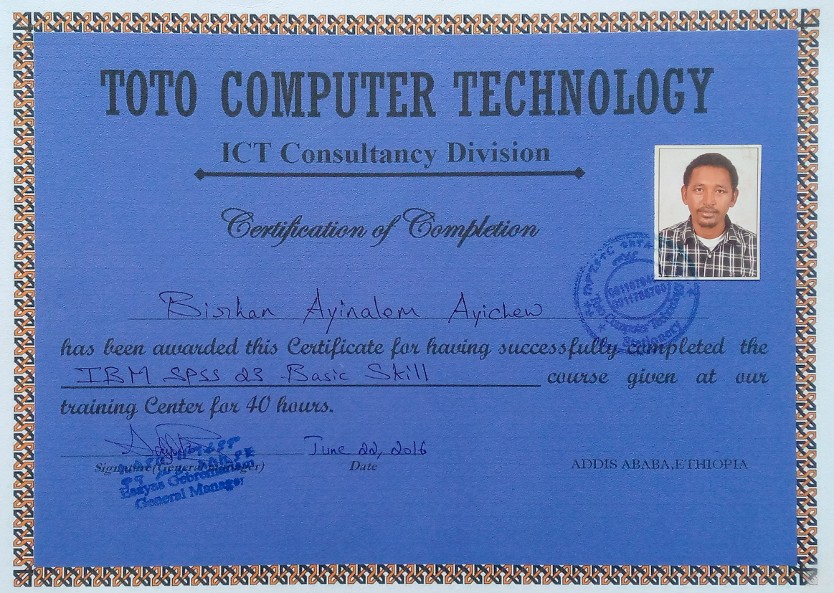 TOTO COMPUTER TECHNOLOGY
ICT Consultancy Division
Certification of Completion
Birhan Ayinalem Ayichew
has been awarded this Certificate for having successfully completed the
IBM SPSS 23 Basic Skill course given at our
training Center for 40 hours.
June 22, 2016
Signature(General Manager) Date ADDIS ABABA,ETHIOPIA
General Manager
Toto Computer Technology
Stationery